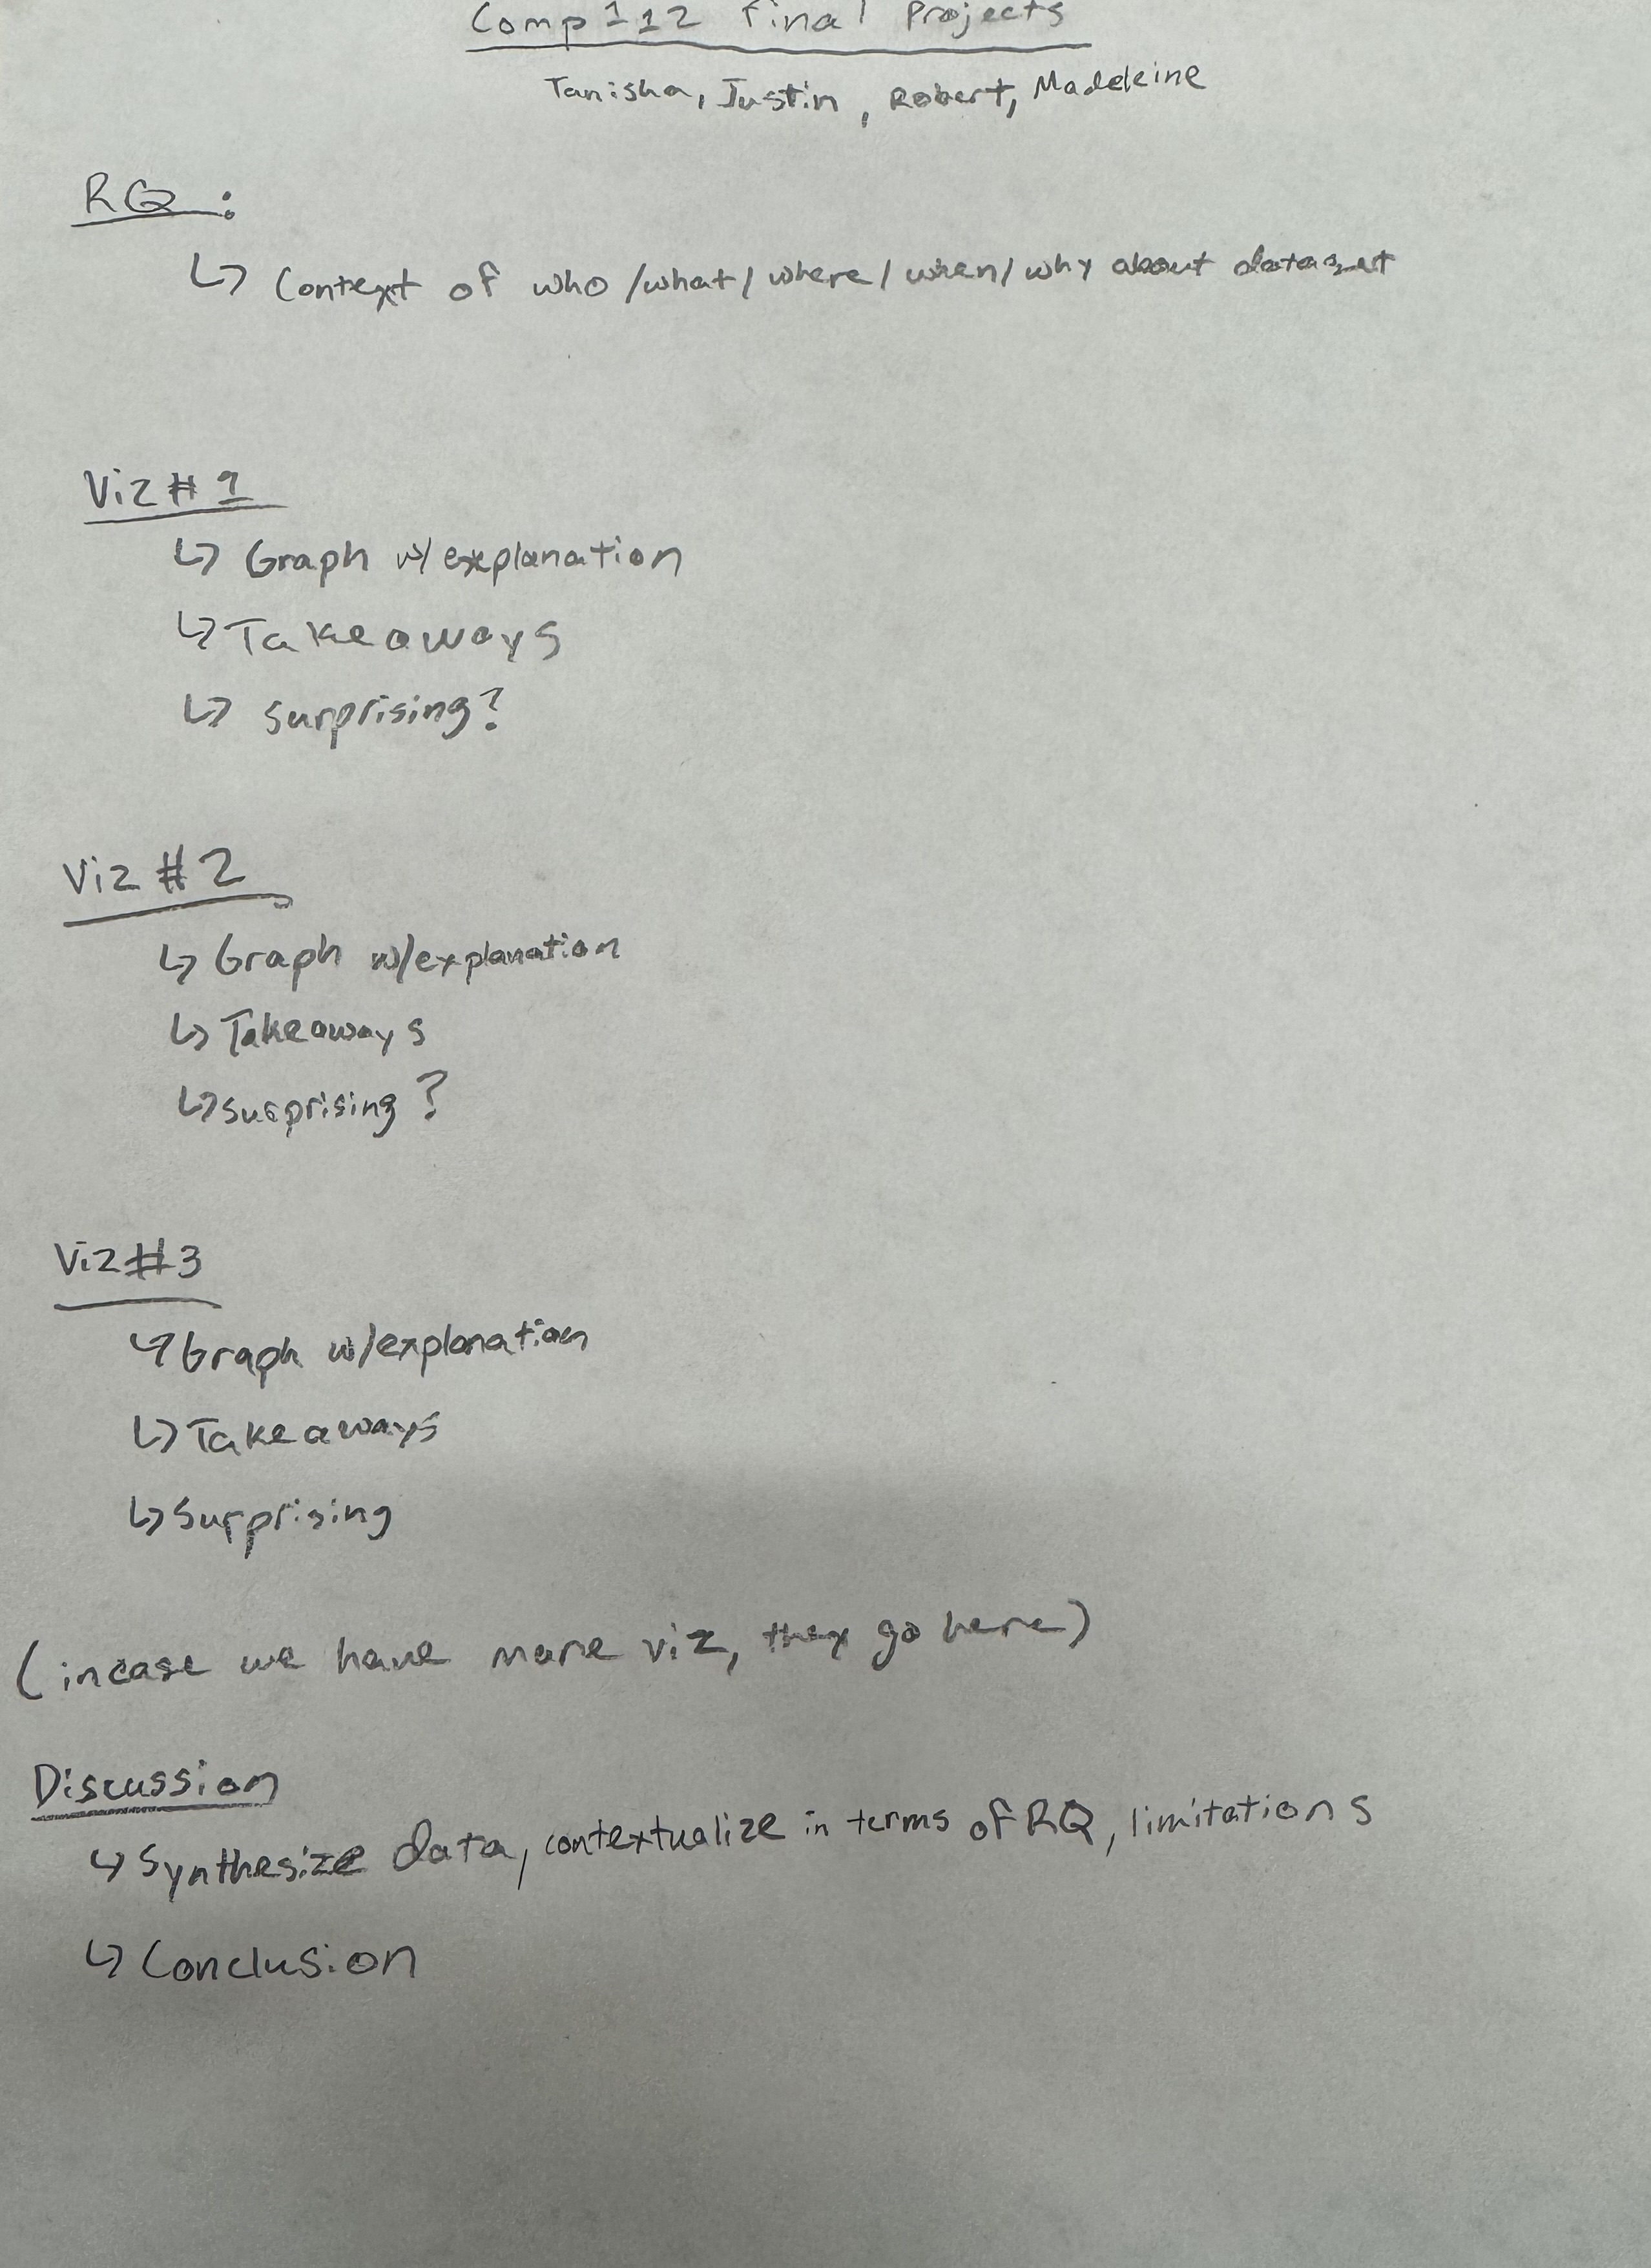 Comp 112 Final Projects
Tanisha, Justin, Robert, Madeleine
RQ:
↳ Context of who/what/where/when/why about dataset
Viz #1
↳ Graph w/explanation
↳ Takeaways
↳ Surprising?
Viz #2
↳ Graph w/explanation
↳ Takeaways
↳ Surprising?
Viz #3
↳ Graph w/explanation
↳ Takeaways
↳ Surprising
(incase we have more viz, they go here)
Discussion
↳ Synthesize data, contextualize in terms of RQ, limitations
↳ Conclusion